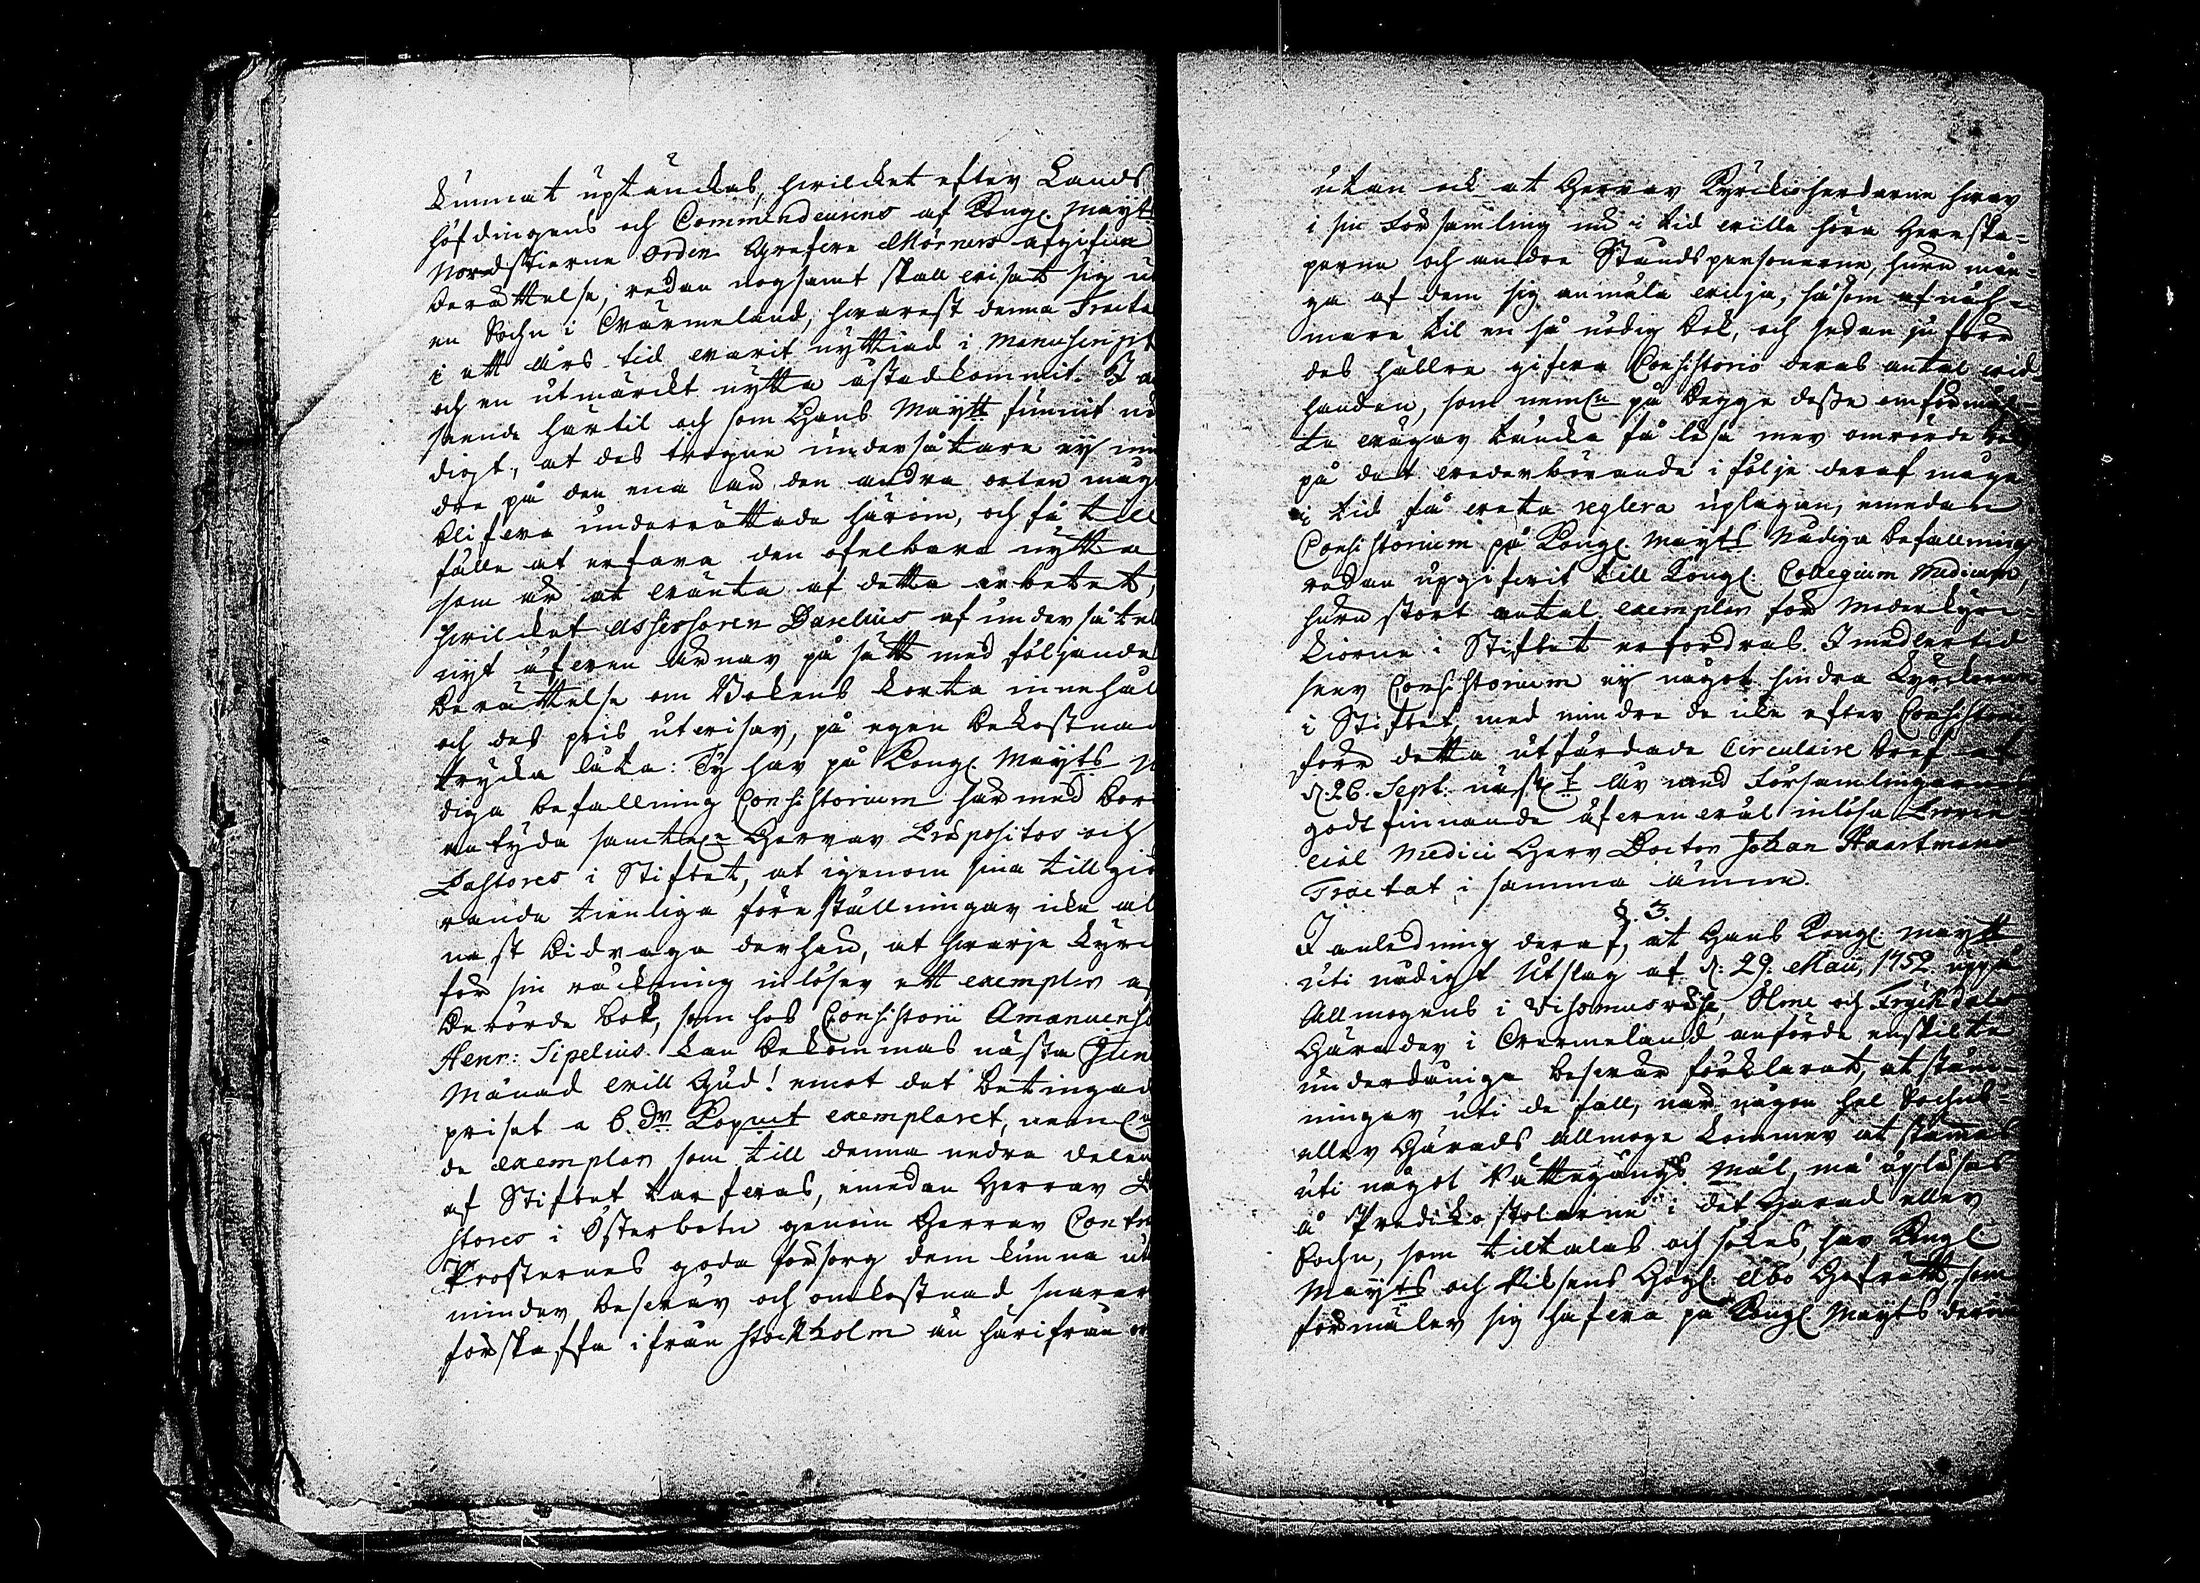 kunnat uptänckas, hwilcket efter Lands
höfdingens och Commendeurens af Kongl. Mayts
Nordstierne Orden Grefwe Mörners afgifne
Berättelse, redan nogsamt skall wisat sig u
en Sochn i Wärmeland, hwarest denna Tracta
i ett Års tid warit nyttiad i Manuscript
och en utmärckt nytta åstadkommit. I a
seende härtil och som Hans Maytt funnit nö
digt, at des trogne undersåtare ej min
dre på den ena än den andra orten måge
blifwa underrättade härom, och få till
fälle at erfara den ofelbara nytta
som är at wänta af detta arbetet,
hwilcket Assessoren Darelius af undersåtel
nyt äfwen ärnar på sätt med följande
Berättelse om Bokens korta innehål
och des pris utwisar, på egen bekostnad
trycka låta: Ty har på Kongl. Mayts N
diga befallning Consistorium härmed bor
antyda samtel:n Herrar Præpositos och
Pastores i Stiftet, at igenom sina tillgiö
rande tienliga föreställningar icke al
nast bidraga derhän, at hwarje kyrc
för sin räckning inlöser ett exemplar af
Berörde bok, som hos Consistorii Amanuens
Henr: Sipelius kan bekommas nästa Jun
Månad will Gud! emot det betingad
priset a 6. Dr Kopmt exemplaret, neml:n
de exemplar som till denna nedra delen
af Stiftet tarfwas, emedan Herrar P
stores i Österbotn genom Herrar Contr
Prosternes goda försorg dem kunna ut
minder beswär och omkostnad snarar
förskaffa ifrån Stockholm än härifrån or
utan ock at Herrar Kyrckioherdarne hwar
i sin Församling nu i tid wille höra Herrska-
perne och andre Ståndspersonerne, huru mån-
ga af dem sig anmäla wilja, såsom afnäh-
mare til en så nödig bok, och sedan ju förr
des hällre gifwa Consistorio deras antal wid
handen, som neml:n på begge desse omförmäl-
te wägar täncka få lösa mer omrörde bok,
på det wederbörande i följe deraf måge
i tid få weta reglera uplagan, emedan
Consistorium på Kongl. Mayts Nådiga befallning
redan upgifwit till Kongl. Collegium Medicum,
huru stort antal exemplar för Moderkyrc-
kiorne i Stiftet erfordras. Imedlertid
seer Consistorium ej något hindra kyrckiorne
i Stiftet, med mindre de icke efter Consistorii
förr detta utfärdade Circulaire bref af
d. 26. Sept. nästl. år med Församlingarnes
godtfinnande äfwenwäl inlösa Provin-
cial Medici Herr Doctor Johan Haartmans
Tractat i samma ämne.
§. 3.
I anledning deraf, at Hans Kongl. Maytt
uti nådigst Utslag af d: 29. Maii, 1752 uppå
Allmogens i Wissnums wäse, Ölme och Fryckdals
Härader i Wermeland anförde enskilte
underdåniga beswär förklarat, at stäm-
ningar uti de fall, när någon hel Sochns-
eller Härads Allmoge kommer at stämmas
uti något Rättegångs Mål, må upläsas
å Predikostolarne i det Härad eller
Sochn, som tiltalas och sökes, har Kongl.
Mayts och Riksens Högl. Åbo Hofrätt, som
förmäler sig hafwa på Kongl. Mayts derom